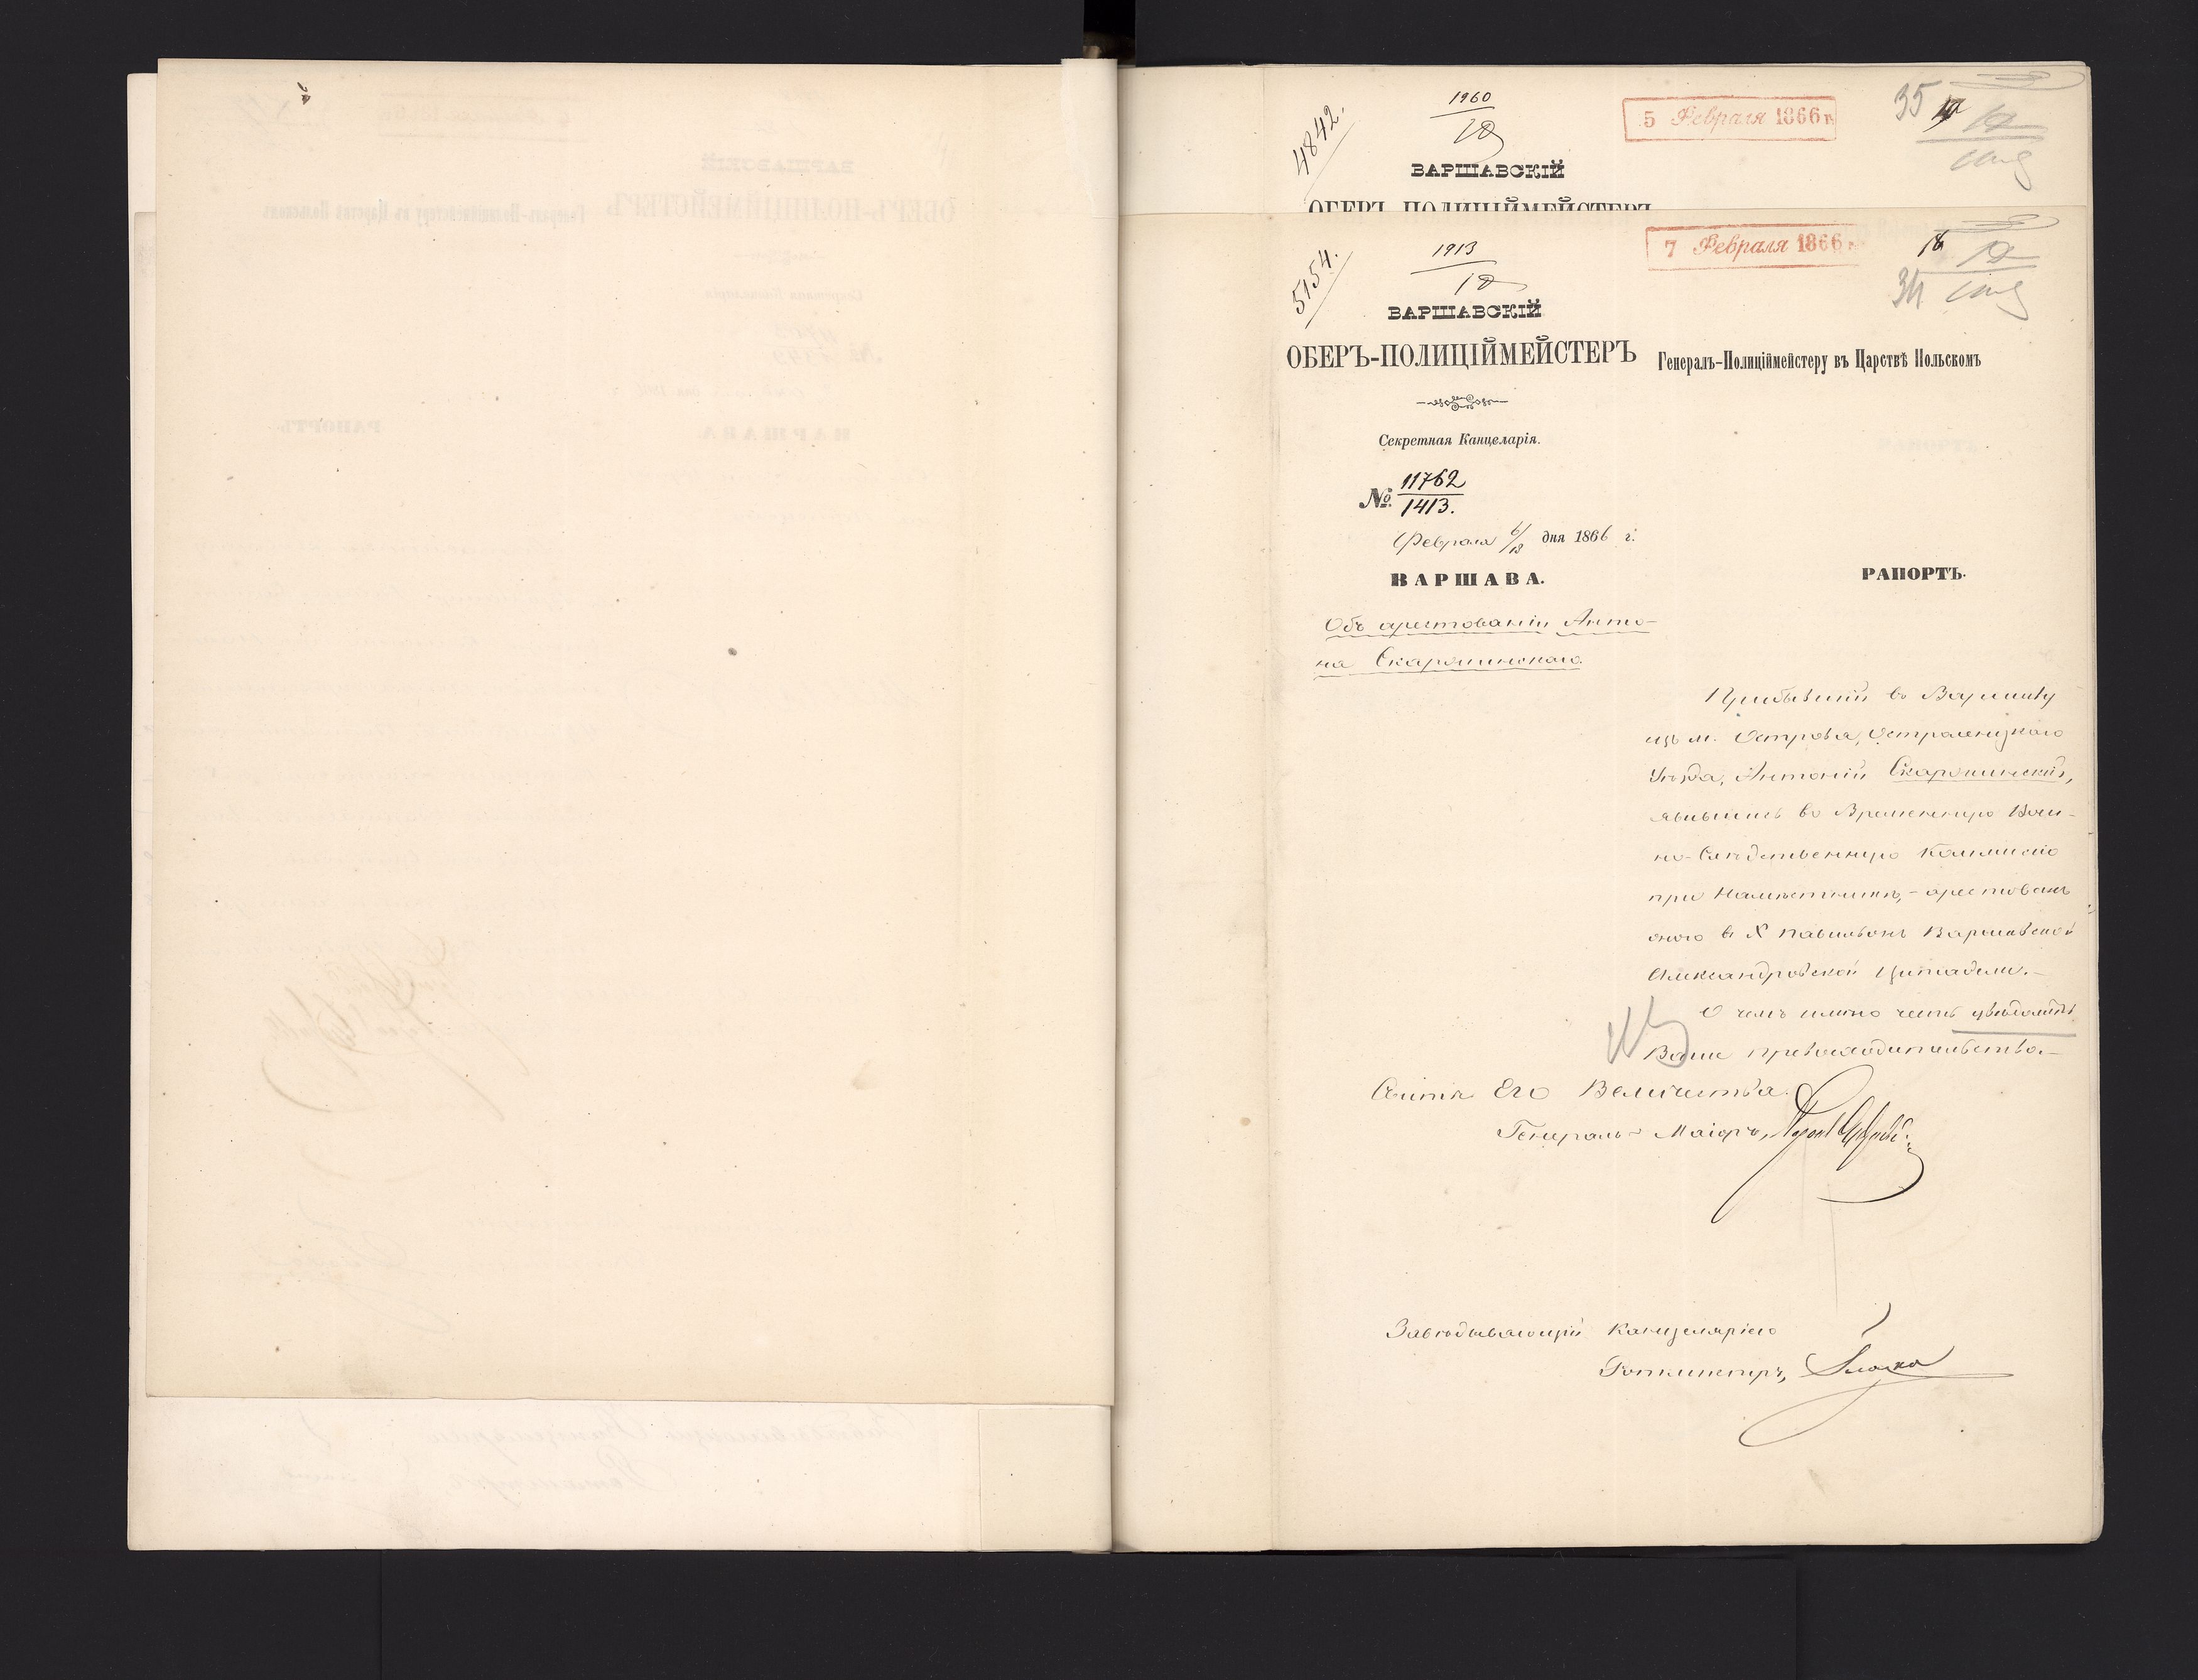 4842.
1960
12
5 Февраля 1866 г.
35
ВАРШАВСКІЙ
ОБЕРЪ-ПОЛИЦІЙМЕЙСТЕРЪ
5154.
1913
12
7 Февраля 1866 г.
18
34
ВАРШАВСКІЙ
ОБЕРЪ-ПОЛИЦІЙМЕЙСТЕРЪ
Генералъ-Полиціймейстеру въ Царствѣ Польскомъ
Секретная Канцелярія.
№ 11762
1413.
Февраля 6/18 дня 1866 г.
ВАРШАВА.
РАПОРТЪ.
Объ арестованіи Анто-
на Скарошинскаго.
Прибывшій въ Варшаву
изъ м. Острова, Остроленцкаго
Уѣзда, Антоній Скарошинскій,
явившись во Временную Воен-
но-Слѣдственную Коммисію
при Намѣстникѣ, - арестованъ
оною въ X павильонъ Варшавской
Александровской Цитадели.-
О чемъ имѣю честь увѣдомить
Ваше превосходительство.-
Свиты Его Величества
Генералъ-Маіоръ, Баронъ
Завѣдывающій Канцеляріею
Ротмистръ,